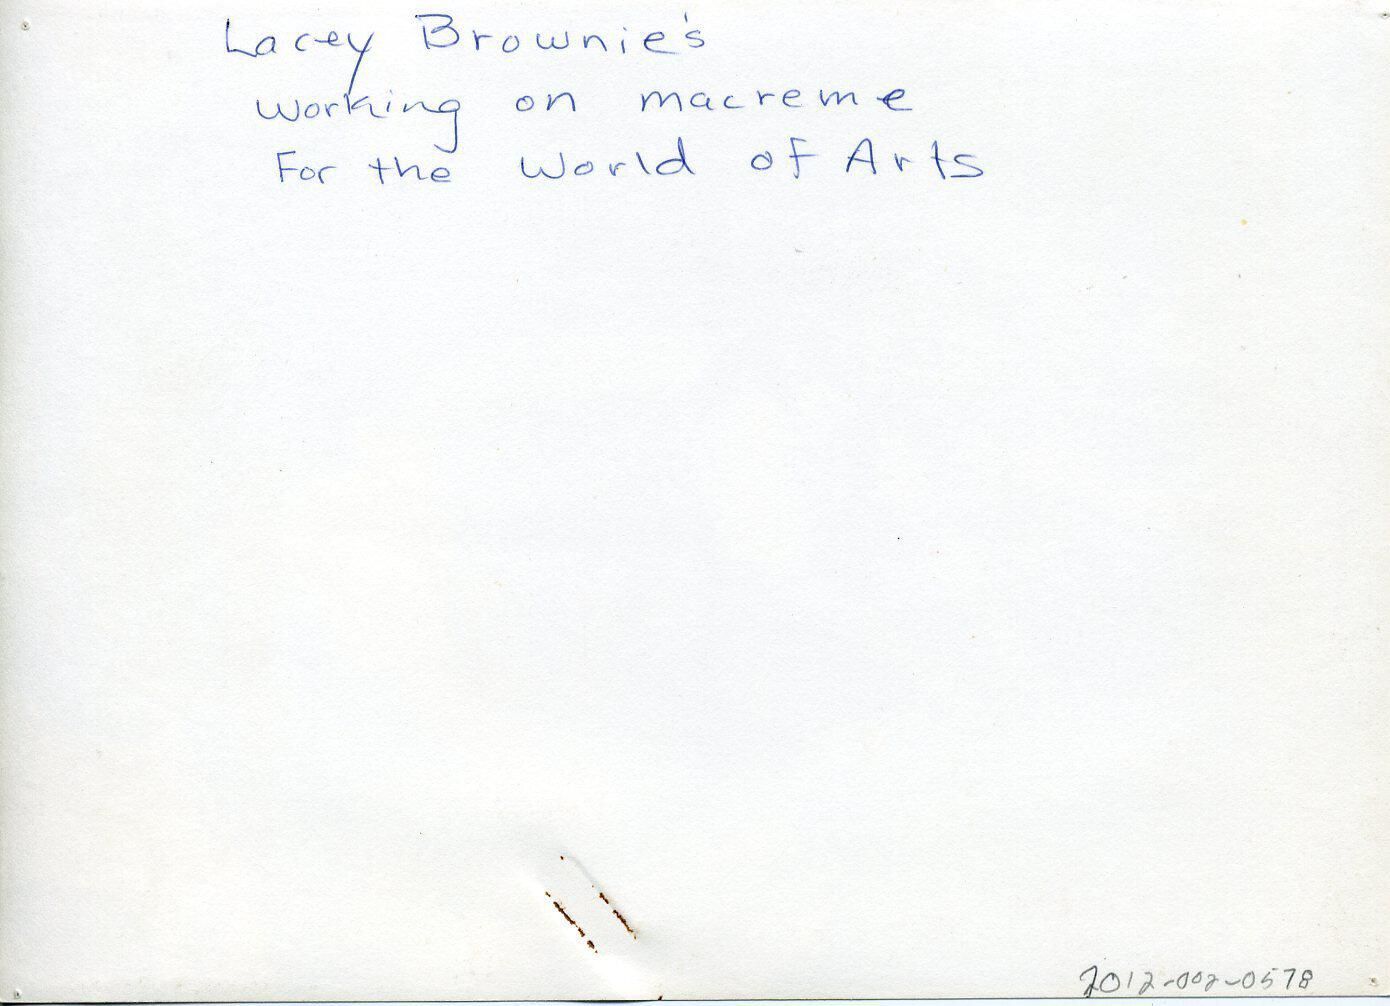 Lacey Brownie's
working on macreme
For the World of Arts
2012-002-0578